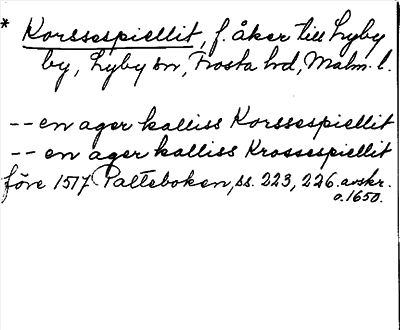 * Korssespiellit, f. åker till Lyby
by, Lyby sn, Frosta hd, Malm. l.
-- en ager kalliss Korssespiellit
-- en ager kalliss Krossespiellit
före 1517 Palteboken, ss. 223, 226. avskr.
o. 1650.